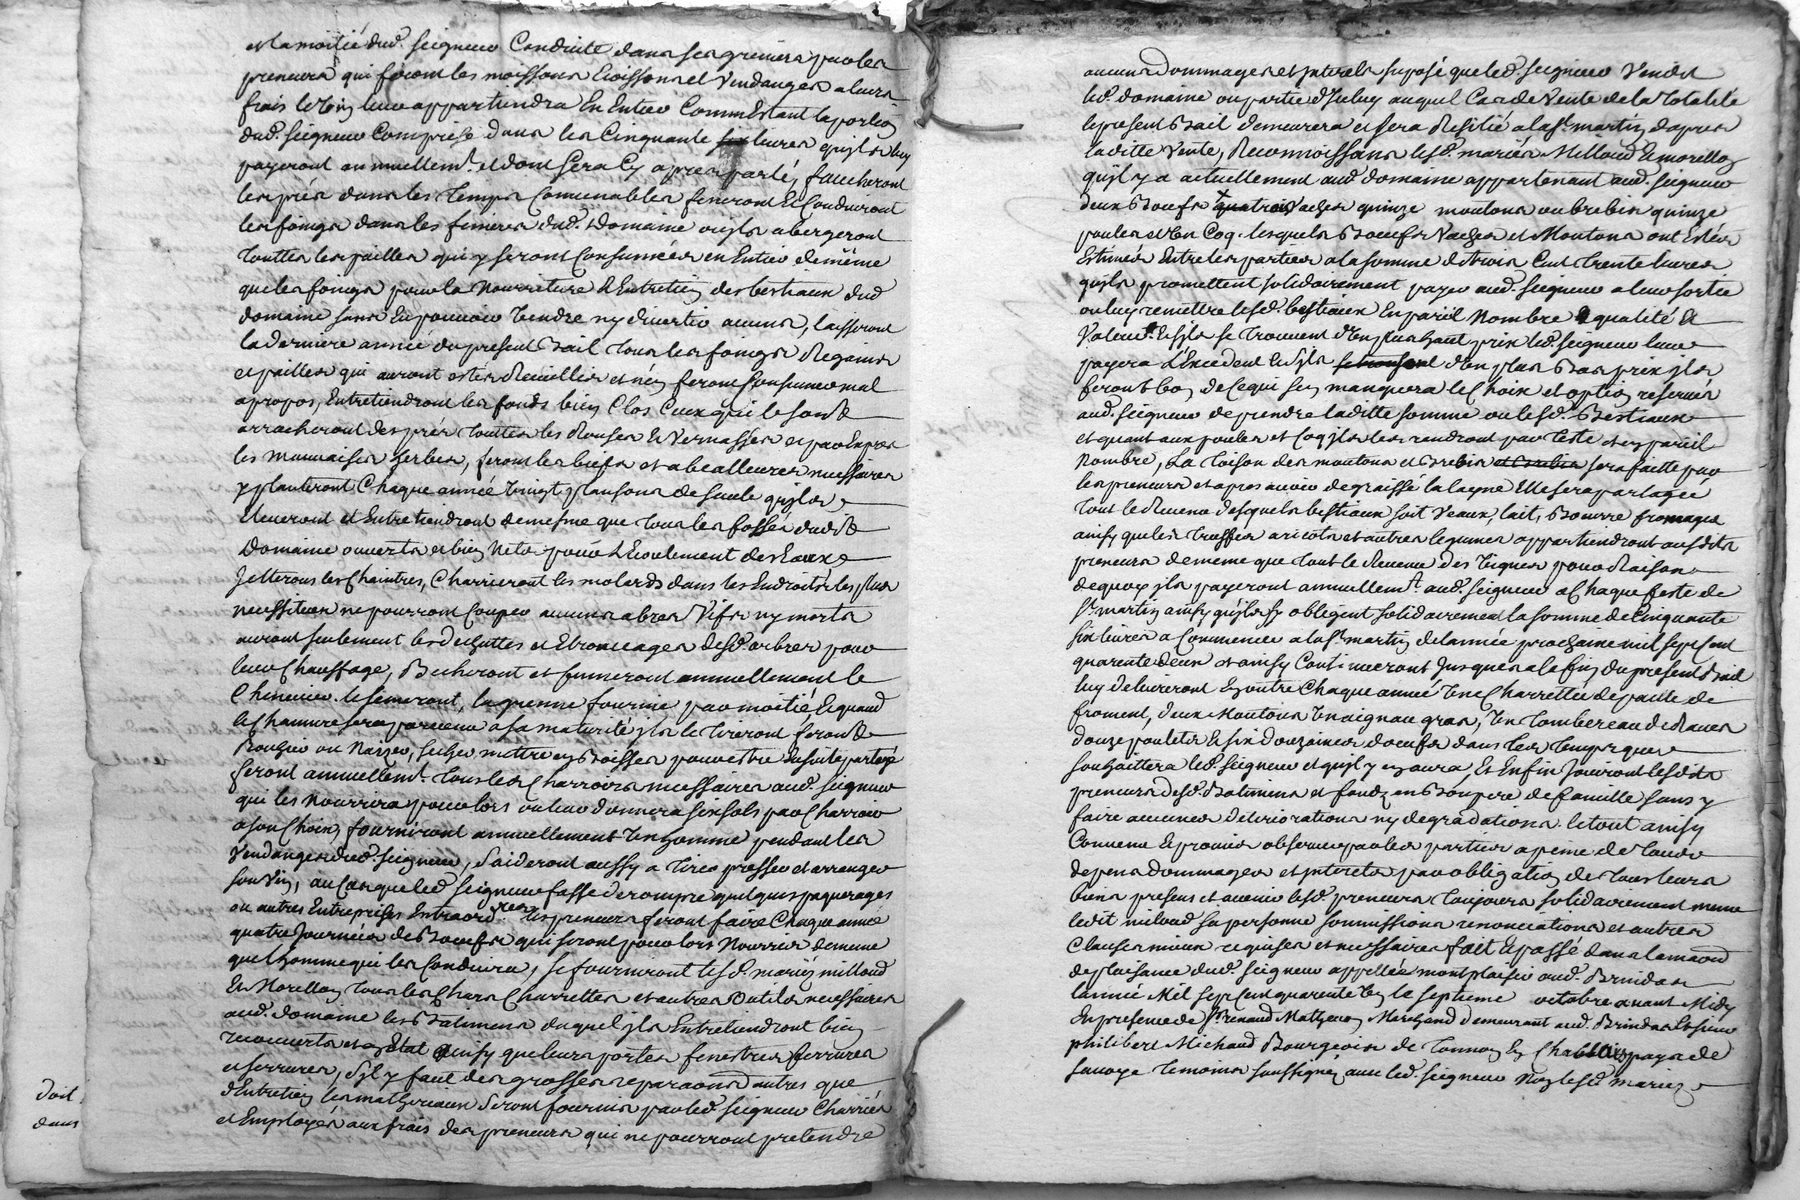 et la moitié dud. seigneur Conduite dans ses greniers par les
preneurs qui feront les moissons Eoissons et Vendanges a leurs
frais le Vin leur appartiendra En Entier Comm Estant la portion
dud. seigneur Comprise dans les Cinquante six livres quils luy
payeront annuellemt. et dont sera Cy apres parlé, faucheront
les prés dans les temps Convenables feneront Et Conduiront
les foings dans les finieres dud. Domaine ou ils abergeront
touttes les pailles qui y seront Consumées en Entier de même
que les foings pour la Nourriture & Entretien des bestiaux dud
domaine sans En pouvoir Vendre ny divertir aucuns, laisseront
la derniere année du present Bail tous les foings Regains
et pailles qui auront estés Recuillis et n'en seront Consumés mal
apropos, Entretiendront les fonds bien Clos Ceux qui le sont
arracheront des prés touttes les Ronses & Vernasses et par Expres
les mauvaises herbes, feront les biefs et abealleures necessaires
y planteront Chaque année Vingt plansons de saule quils
Eleveront et Entretiendront de mesme que tous les fossés dudit
Domaine ouverts et bien Nets pour L'Ecoulement des Eaux
Jetterons les Chaintres, Charrieront les molards dans les Endroits les plus
necessiteux ne pourront Couper aucuns abres Vifs ny morts
auront seulement les dechuttes et Ebroncages desd. arbres pour
leur Chauffage, Becheront et fumeront annuellement le
Chenevier le semeront, la grenne fournie par moitié & quand
le Channre sera parvenu a sa maturité ils le tireront feront
Rouhir ou Nayzer, secher mettre en Boisses pour estre Ensuite partagé
feront annuellemt. tous les Charrois necessaires aud. seigneur
qui les Nourrira pour lors ou leur donnera six sols par Charroir
a son Choix, fourniront annuellement Un homme pendant les
Vendanges dud. seigneur, s'aideront aussy a tirer presser et arranger
son Vin, au Cas que led. seigneur fasse derompre quelques paquerages
ou autres Entreprises Extraordres les preneurs feront faire Chaque année
quatre Journées de Boeufs qui seront pour lors Nourris de meme
que l'homme qui les Conduira, se fourniront lesd. mariés millaud
Et Morellon tous les Chars Charrettes et autres outils necessaires
aud. domaine les Batimens duquel ils Entretiendront bien
recouverts et en Etat ainsy que leurs portes fenestres ferrures
et serrures, s'il y faut des grosses reparaons autres que
d'Entretien les matheriaux seront fournis par led. seigneur Charriés
et Employés aux frais des preneurs qui ne pourront pretendre
doit
dans
aucuns dommages et Interets suposé que led. seigneur Vendit
led. domaine ou partie d'Iceluy auquel Cas de Vente de la totalité
le present Bail demeurera et sera Resilié a la St. martin d'apres
laditte Vente, Reconnoissans lesd. mariés Millaud & morellon
qu'il y a actuellement aud. domaine appartenant aud. seigneur
deux Boeufs quatre Vaches quinze moutons ou brebis quinze
poules et Un Coq. lesquels Boeufs Vaches et Moutons ont Estés
Estimés Entre les parties a la somme de trois Cent trente livres
quils promettent solidairement payer aud. seigneur a leur sortie
ou luy remettre lesd. bestiaux En pareil Nombre qualité et
Valeur. Et s'ils se trouvent d'Un plus haut prix led. seigneur leur
payera L'Excedent Et s'ils se trouvent d'Un plus Bas prix ils
feront bon de Ce qui s'en manquera le Choix et option reservés
aud. seigneur de prendre laditte somme ou lesd. Bestiaux
et quant aux poules et Coq ils les rendront par teste et en pareil
Nombre, La toison des moutons et Brebis et Brebis sera faitte par
les preneurs et apres avoir degraissé la layne Elle sera partagée
tout le Revenu desquels bestiaux soit Veaux, lait, Beurre fromages
ainsy que les truffes aricots et autres legumes appartiendront ausdits
preneurs de meme que tout le Revenu des Vignes pour Raison
de quoy ils payeront annuellemt. aud. seigneur a Chaque feste de
St. martin ainsy quils s'y obligent solidairement la somme de Cinquante
six livres a Commencer a la St. martin de l'année prochaine mil sept Cent
quarente deux et ainsy Continueront Jusques a la fin du present Bail
luy delivreront En outre Chaque année Une Charrettée de paille de
froment, deux Moutons Un aigneau gras, Un tombereau de Raves
douze poulets & six douzaines d'oeufs dans les temps que
souhaittera led. seigneur et qu'il y en aura, Et Enfin Jouiront lesdits
preneurs desd. Batimens et fondz en Bon pere de famille sans y
faire aucunes deteriorations ny degradations. le tout ainsy
Convenu & promis observer par les parties a peine de tous
depens dommages et interets par obligation de tous leurs
biens presens et avenir lesd. preneurs toujours solidairement meme
ledit milaud sa personne soumissions renonciations et autres
Clauses mieux requises et necessaires fait & passé dans la maon
de plaisance dud. seigneur appellée montplaisir aud. Brindas
l'année Mil sept Cent quarente Un le septieme octobre avant Midy
En presence de sr. Renaud Mathevon Marchand demeurant aud. Brindas & sieur
philibert Michaud Bourgeois de tonnon En Chablais pays de
savoye temoins soussignés avec led. seigneur Non lesd. mariez